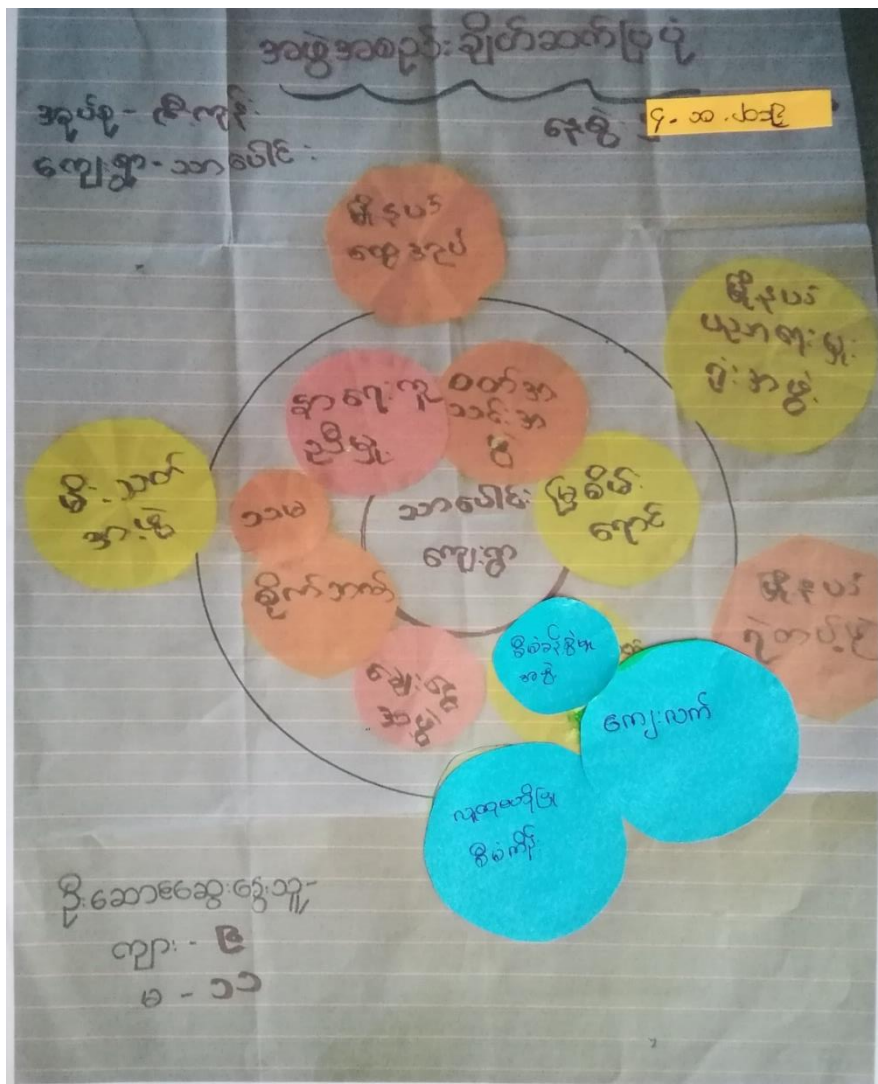 အဖွဲ့အစည်းချိတ်ဆက်ပြပုံ
အုပ်စု - ညီကျန်း
ကျေးရွာ - သာပေါင်း
နေ့စွဲ
မြို့နယ်
ထွေ/အုပ်
မြို့နယ်
ပညာရေးမှူး
ရုံးအဖွဲ့
နာရေးကူ
ညီမှု
ဝတ်အာ
သင်းအ
ဖွဲ့
မီးသတ်
အဖွဲ့
သသမ
သာပေါင်း
ကျေးရွာ
မြစိမ်း
ရောင်
စိုက်ဘဏ်
မြို့နယ်
ရဲတပ်ဖွဲ့
ချေးငွေ
အဖွဲ့
စီမံခန့်ခွဲမှု
အဖွဲ့
ကျေးလက်
လူထုဗဟိုပြု
စီမံကိန်း
ဦးဆောင်ဆွေးနွေးသူ-
ကျား - ၆
မ - ၁၁